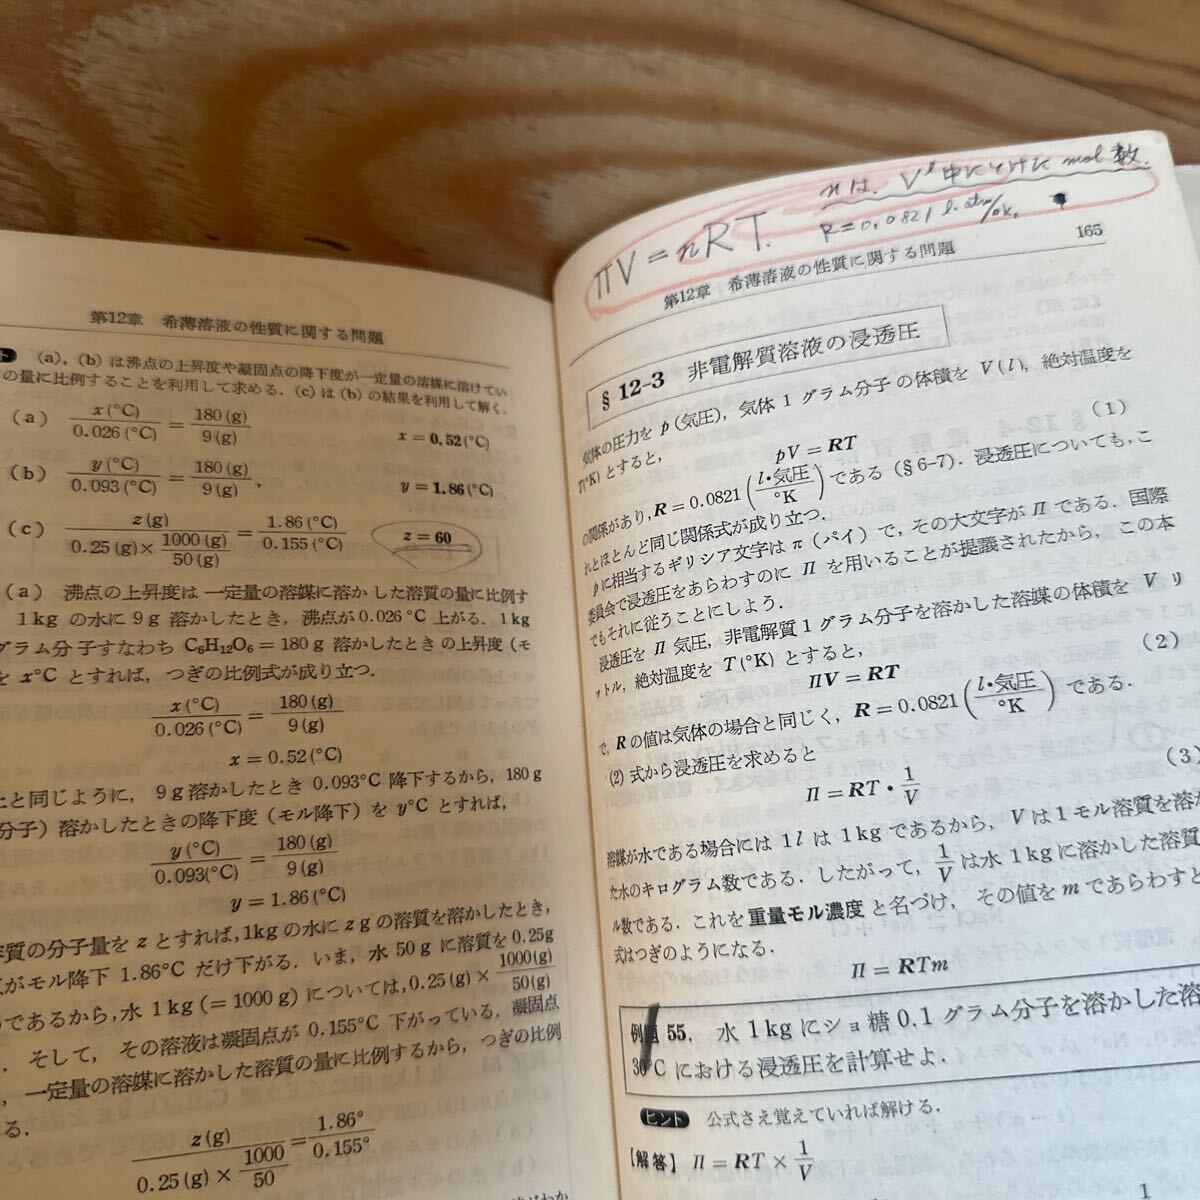 第12章 希薄溶液の性質に関する問題
(a), (b) は沸点の上昇度や凝固点の降下度が一定量の溶媒に溶けてい
の量に比例することを利用して求める. (c) は (b) の結果を利用して解く.
(a) x(°C)/0.026(°C) = 180(g)/9(g) x=0.52(°C)
(b) y(°C)/0.093(°C) = 180(g)/9(g), y=1.86(°C)
(c) z(g)/0.25(g)×1000(g)/50(g) = 1.86(°C)/0.155(°C) z=60
(a) 沸点の上昇度は一定量の溶媒に溶かした溶質の量に比例す
1kg の水に 9g 溶かしたとき, 沸点が 0.026°C 上がる. 1kg
グラム分子すなわち C₆H₁₂O₆=180g 溶かしたときの上昇度 (モ
を x°C とすれば, つぎの比例式が成り立つ.
x(°C)/0.026(°C) = 180(g)/9(g)
x=0.52(°C)
と同じように, 9g 溶かしたとき 0.093°C 降下するから, 180g
分子) 溶かしたときの降下度 (モル降下) を y°C とすれば,
y(°C)/0.093(°C) = 180(g)/9(g)
y=1.86(°C)
溶質の分子量を z とすれば, 1kg の水に z g の溶質を溶かしたとき,
がモル降下 1.86°C だけ下がる. いま, 水 50g に溶質を 0.25g
であるから, 水 1kg (=1000g) については, 0.25(g)×1000(g)/50(g)
. そして, その溶液は凝固点が 0.155°C 下がっている. 凝固点
, 一定量の溶媒に溶かした溶質の量に比例するから, つぎの比例
る.
z(g)/0.25(g)×1000/50 = 1.86°/0.155°
ΠV=nRT.
nは. V^l 中にとけた mol 数.
R=0.0821 l.atm/°K.
165
第12章 希薄溶液の性質に関する問題
§ 12-3 非電解質溶液の浸透圧
気体の圧力を p (気圧), 気体 1 グラム分子の体積を V(l), 絶対温度を
T(°K) とすると,
pV=RT (1)
の関係があり, R=0.0821(l・気圧/°K) である (§6-7). 浸透圧についても, こ
れとほとんど同じ関係式が成り立つ.
p に相当するギリシア文字は π (パイ) で, その大文字が Π である. 国際
委員会で浸透圧をあらわすのに Π を用いることが提議されたから, この本
でもそれに従うことにしよう.
浸透圧を Π 気圧, 非電解質 1 グラム分子を溶かした溶媒の体積を V リ
ットル, 絶対温度を T(°K) とすると,
ΠV=RT (2)
で, R の値は気体の場合と同じく, R=0.0821(l・気圧/°K) である.
(2) 式から浸透圧を求めると
Π=RT・1/V (3)
溶媒が水である場合には 1l は 1kg であるから, V は 1 モル溶質を溶か
た水のキログラム数である. したがって, 1/V は水 1kg に溶かした溶質
ル数である. これを重量モル濃度と名づけ, その値を m であらわすと
式はつぎのようになる.
Π=RTm
例題 55. 水 1kg にショ糖 0.1 グラム分子を溶かした溶
30°C における浸透圧を計算せよ.
ヒント 公式さえ覚えていれば解ける.
[解答] Π=RT×1/V